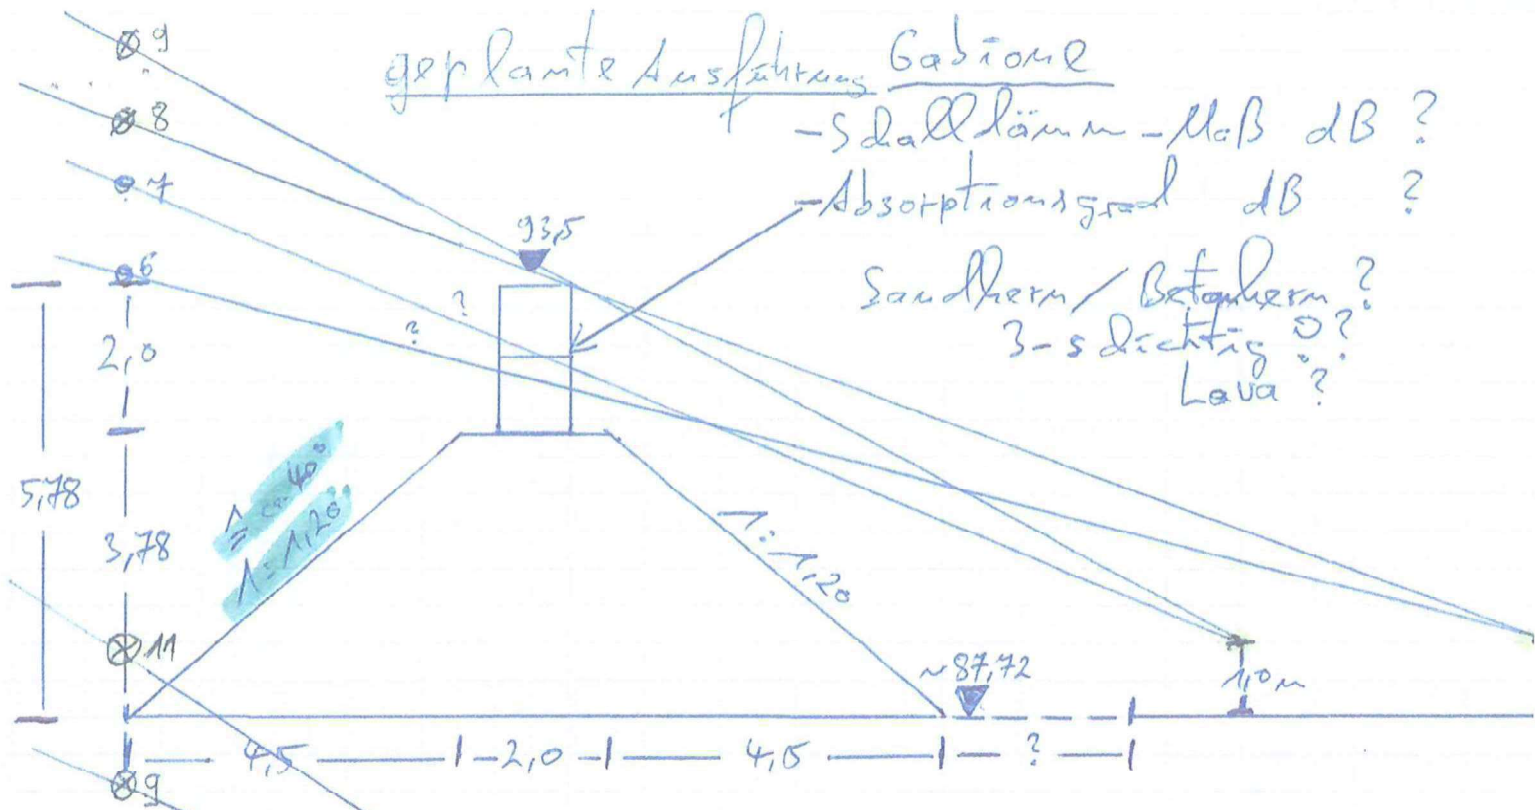 9
geplante Ausführung Gabione
8
- Schalldämm-Maß dB ?
7
- Absorptionsgrad dB ?
93,5
6
Sandkern / Betonkern ?
?
3-schichtig ?
?
2,0
Lava ?
≙ ca. 40°
1:1,20
5,78
3,78
1:1,20
11
~87,72
1,0 m
4,5
2,0
4,5
?
9